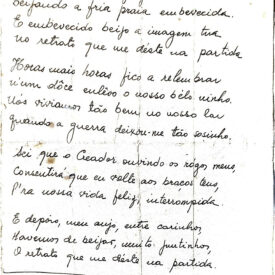 beijando a fria praia embevecida.
E embevecido beijo a imagem tua
no retrato que me déste na partida
Horas mais horas fico a relembrar
n'um dôce enlêvo o nosso bélo ninho.
Nós viviamos tão bem no nosso lar
quando a guerra deixou-me tão sosinho.
Sei que o Creador ouvindo os rógos meus,
Consentirá que eu volte aos braços teus,
P'ra nossa vida feliz, interrompida.
E depois, meu anjo, entre carinhos,
Havemos de beijar, muito juntinhos,
O retrato que me déste na partida.